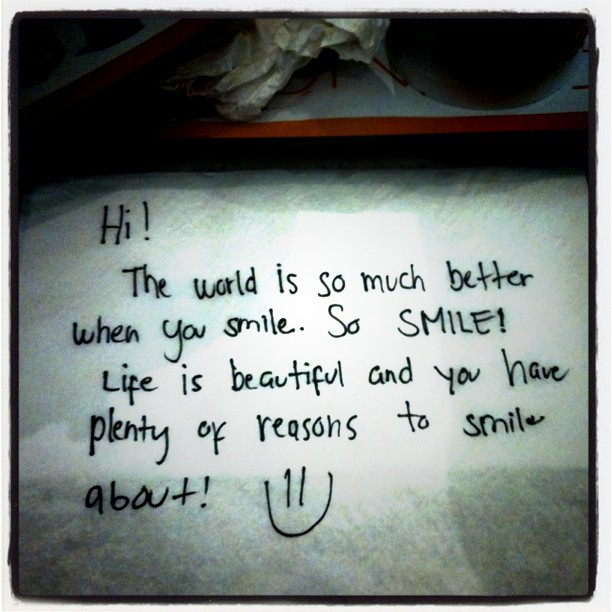 Hi!
The world is so much better
when you smile. So SMILE!
Life is beautiful and you have
plenty of reasons to smile
about!